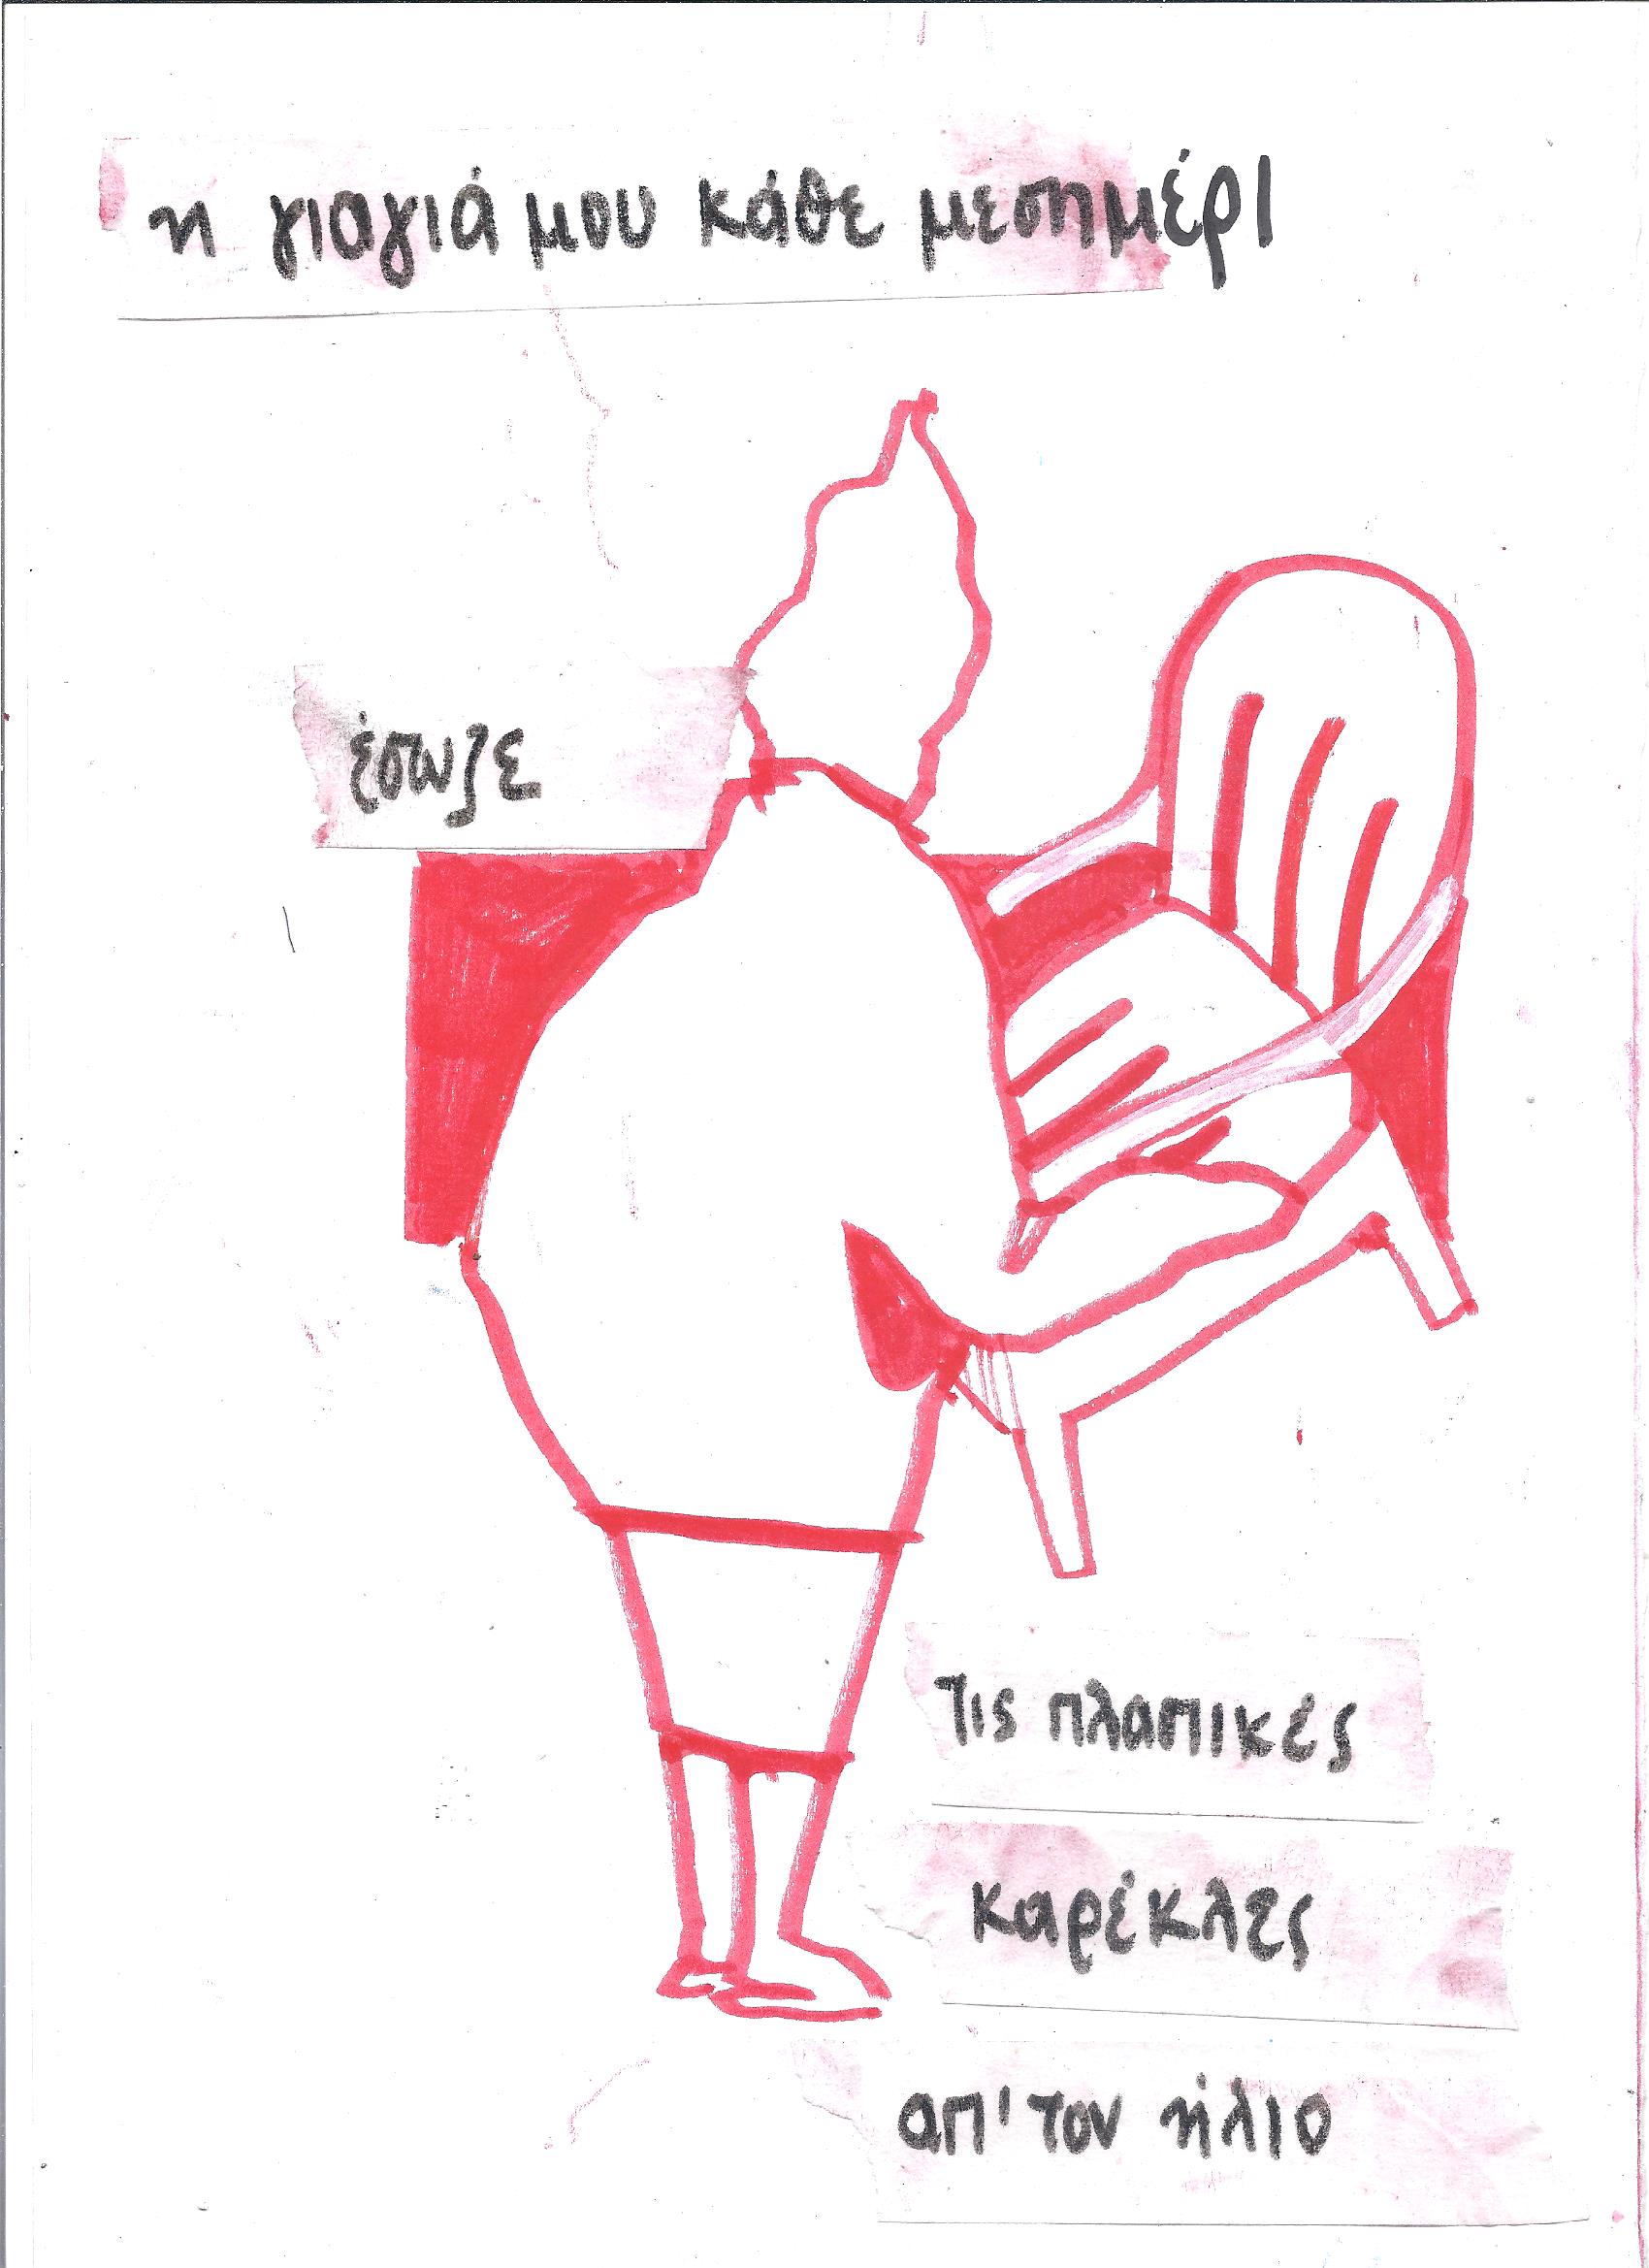 η γιαγιά μου κάθε μεσημέρι
έσωζε
τις πλαστικές
καρέκλες
απ' τον ήλιο